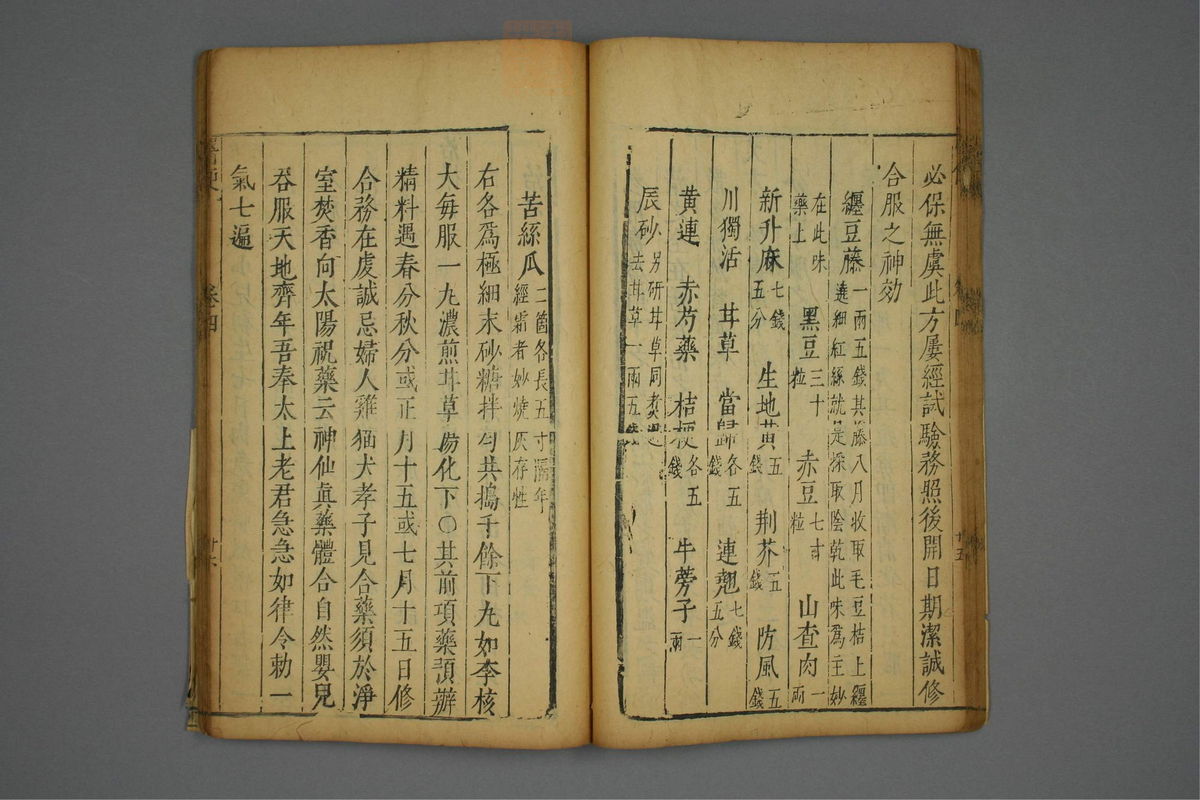 必保無虞此方屢經試驗務照後開日期潔誠修
合服之神効
纏豆藤一兩五錢其藤八月收取毛豆梏上纏
遶細紅絲就是採取陰乾此味爲主妙
在此味
藥上 黑豆三十粒 赤豆七十粒 山查肉一兩
新升麻七錢五分 生地黃五錢 荆芥五錢 防風五錢
川獨活 甘草 當歸各五錢 連翹七錢五分
黃連 赤芍藥 桔梗各五錢 牛蒡子一兩
辰砂另研甘草同煮過
去甘草一兩五錢
苦絲瓜二箇各長五寸隔年
經霜者妙燒灰存性
右各爲極細末砂糖拌勻共搗千餘下丸如李核
大每服一丸濃煎甘草湯化下〇其前項藥預辦
精料遇春分秋分或正月十五或七月十五日修
合務在虔誠忌婦人雞猫犬孝子見合藥須於淨
室焚香向太陽祝藥云神仙眞藥體合自然嬰兒
吞服天地齊年吾奉太上老君急急如律令勅一
氣七遍
卷四